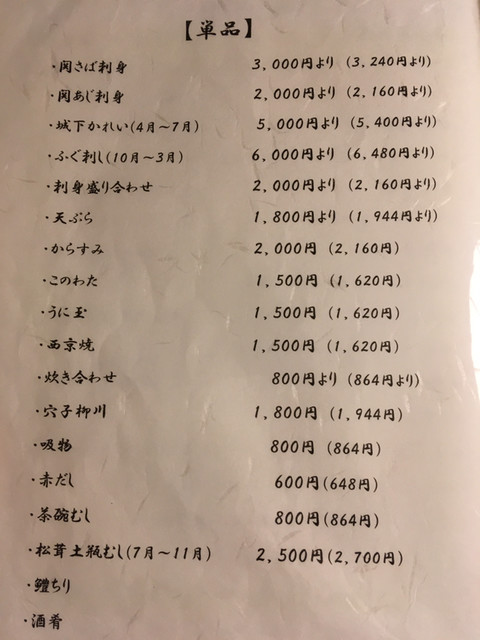 【単品】
・関さば刺身 3,000円より (3,240円より)
・関あじ刺身 2,000円より (2,160円より)
・城下かれい(4月～7月) 5,000円より (5,400円より)
・ふぐ刺し(10月～3月) 6,000円より (6,480円より)
・刺身盛り合わせ 2,000円より (2,160円より)
・天ぷら 1,800円より (1,944円より)
・からすみ 2,000円 (2,160円)
・このわた 1,500円 (1,620円)
・うに玉 1,500円 (1,620円)
・西京焼 1,500円 (1,620円)
・炊き合わせ 800円より (864円より)
・穴子柳川 1,800円 (1,944円)
・吸物 800円 (864円)
・赤だし 600円(648円)
・茶碗むし 800円(864円)
・松茸土瓶むし(7月～11月) 2,500円(2,700円)
・鱧ちり
・酒肴